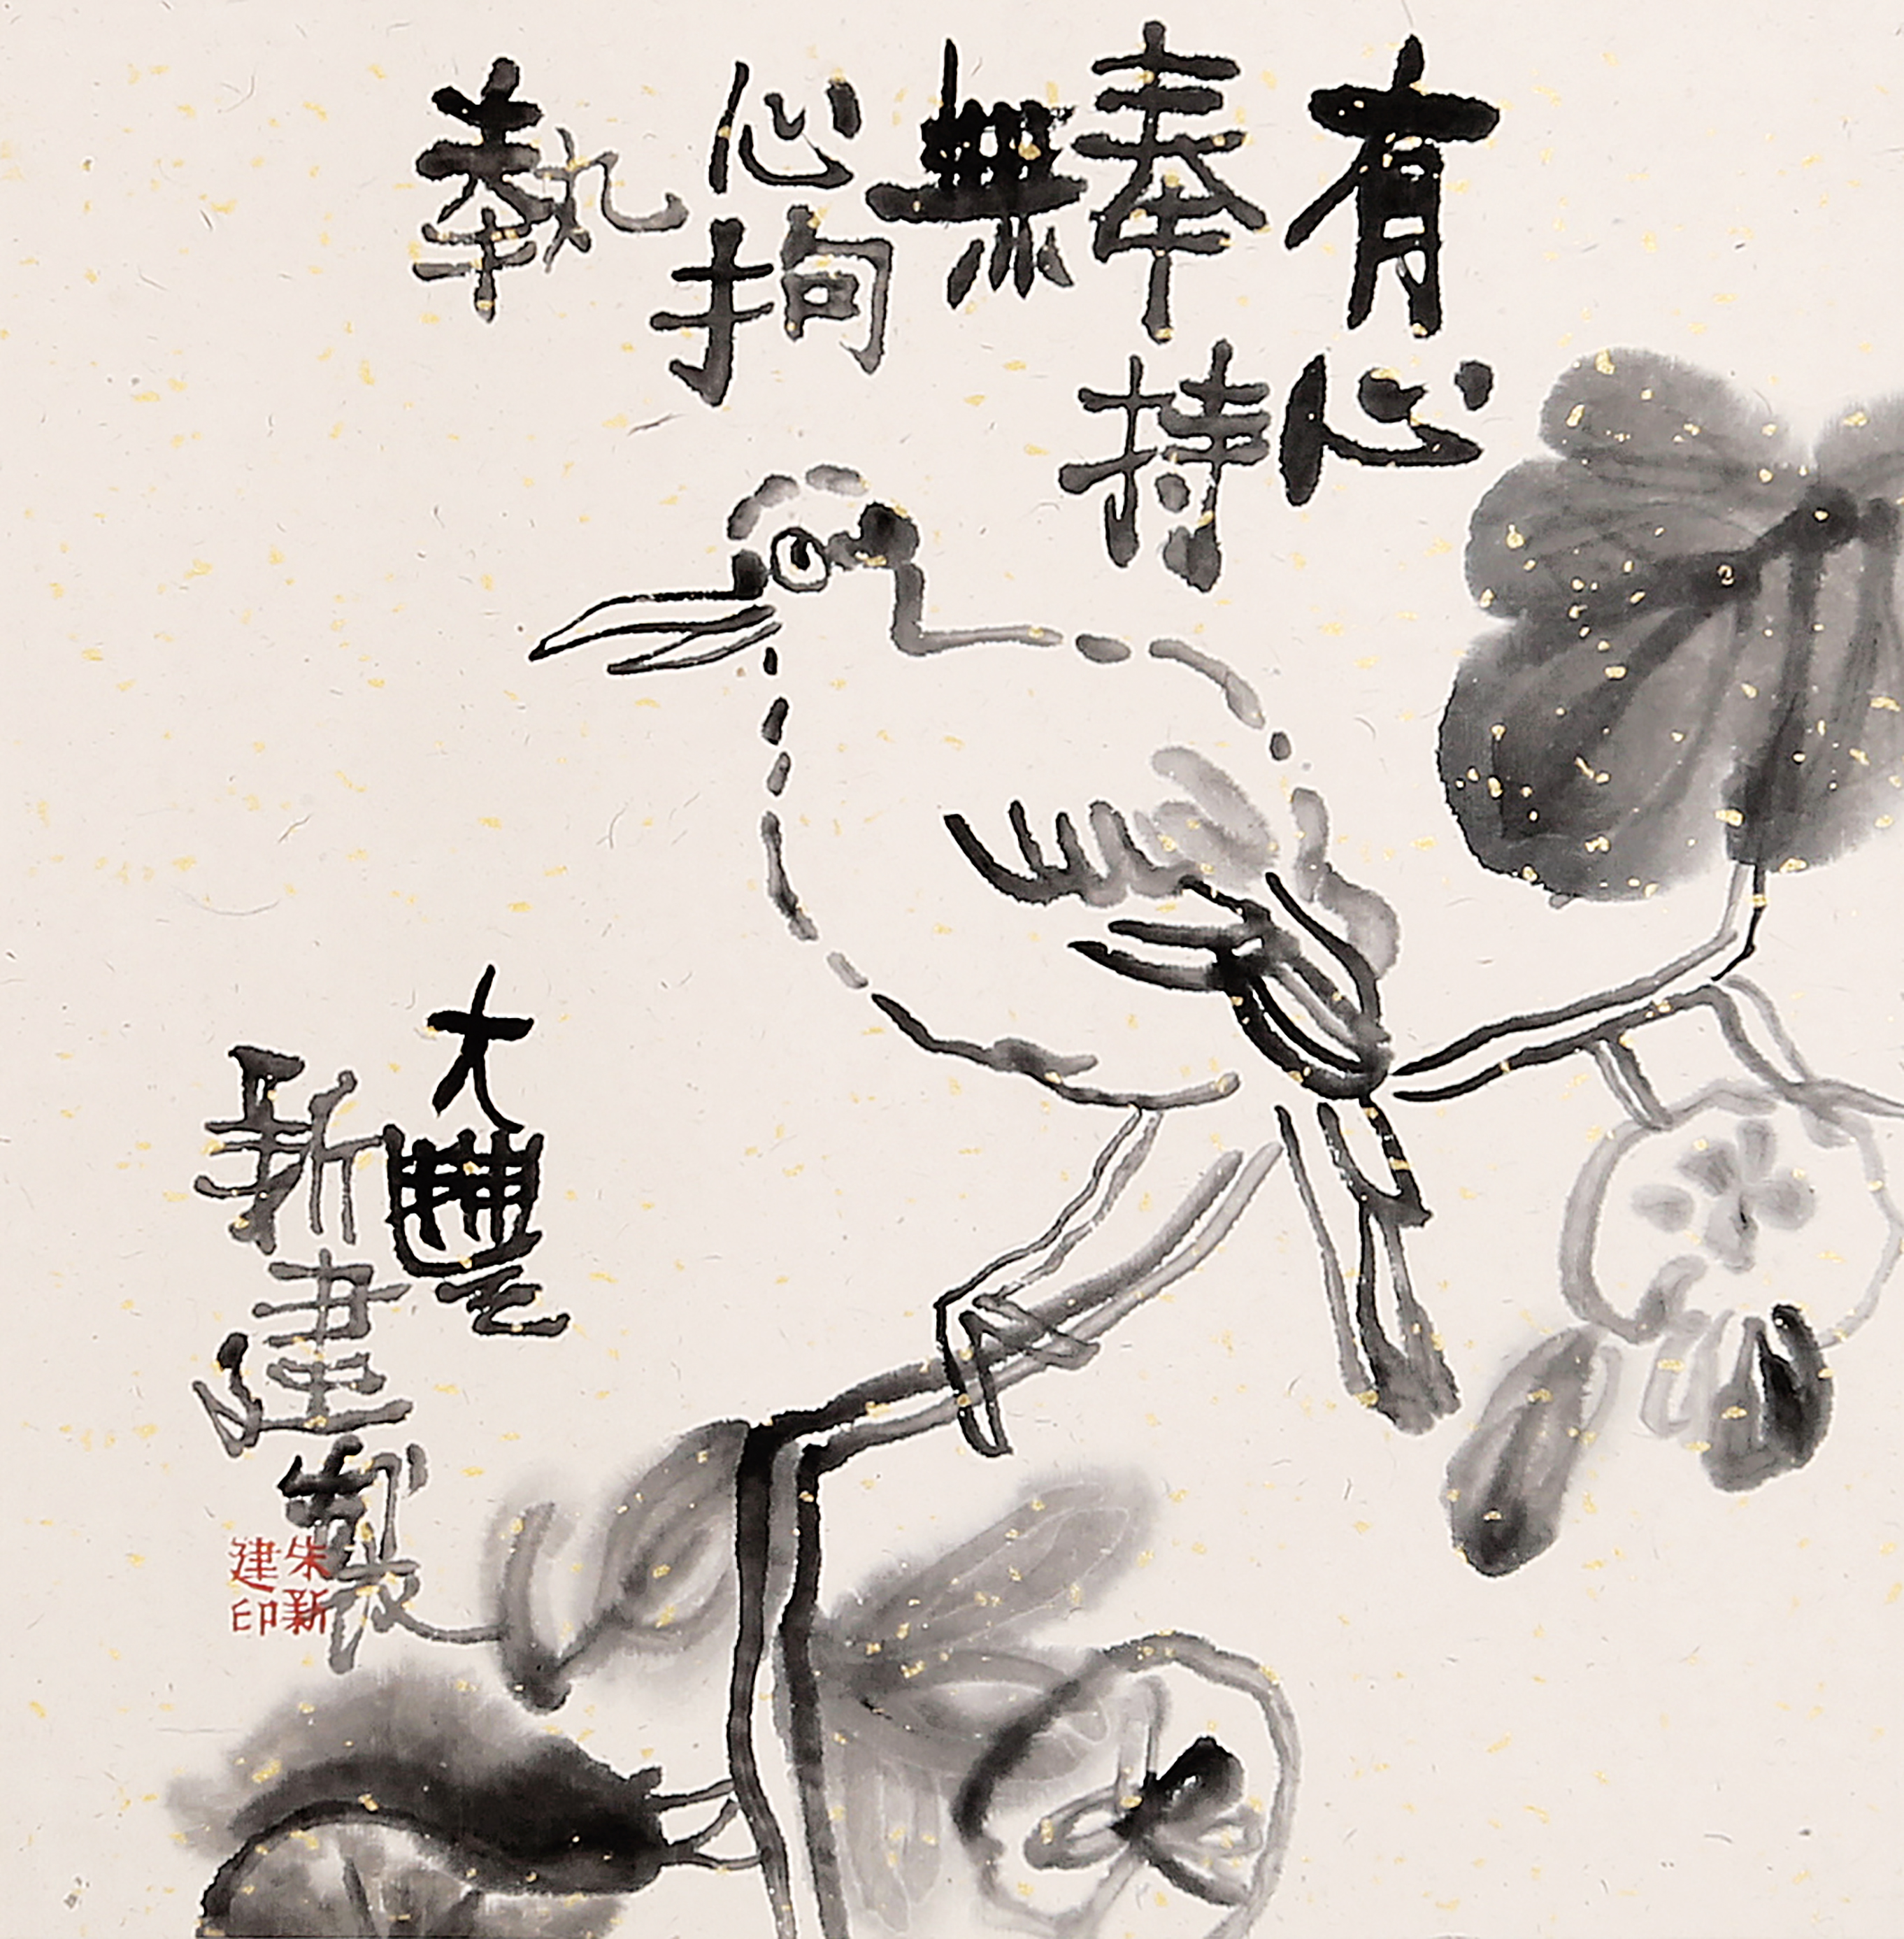 有心
奉持
無
心拘
執
大豐
新建製
朱新
建印